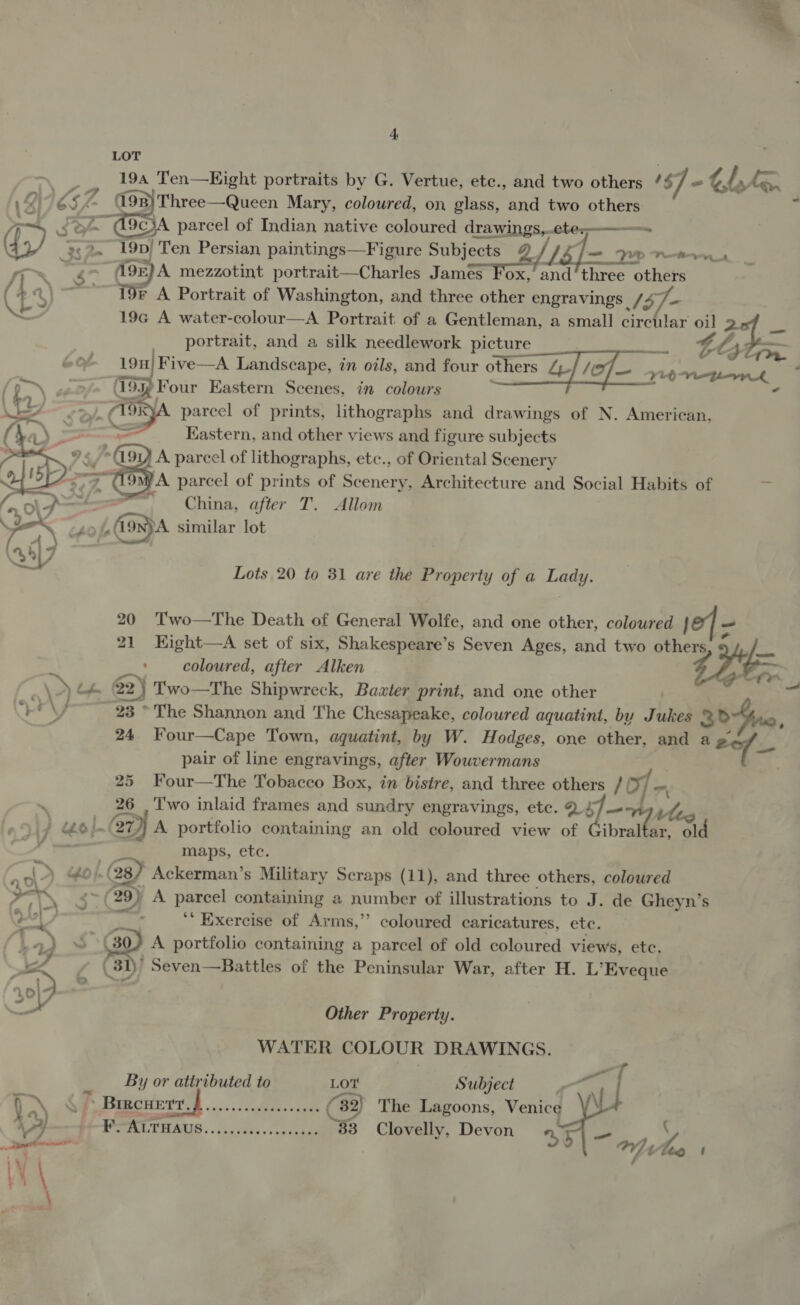 4
LOT
19A Ten—Eight portraits by G. Vertue, etc., and two others
19B Three—Queen Mary, coloured, on glass, and two others
19C A parcel of Indian native coloured drawings, etc.
19D Ten Persian paintings—Figure Subjects
19E A mezzotint portrait—Charles James Fox, and three others
19F A Portrait of Washington, and three other engravings 15/-
19G A water-colour—A Portrait of a Gentleman, a small circular oil
portrait, and a silk needlework picture
19H Five—A Landscape, in oils, and four others
19J Four Eastern Scenes, in colours
19K A parcel of prints, lithographs and drawings of N. American,
Eastern, and other views and figure subjects
19L A parcel of lithographs, etc., of Oriental Scenery
19M A parcel of prints of Scenery, Architecture and Social Habits of
China, after T. Allom
19N A similar lot
Lots 20 to 31 are the Property of a Lady.
20 Two—The Death of General Wolfe, and one other, coloured
21 Eight—A set of six, Shakespeare's Seven Ages, and two others,
coloured, after Alken
22 Two—The Shipwreck, Baxter print, and one other
23 The Shannon and The Chesapeake, coloured aquatint, by Jukes
24 Four—Cape Town, aquatint, by W. Hodges, one other, and a
pair of line engravings, after Wouvermans
25 Four—The Tobacco Box, in bistre, and three others
26 Two inlaid frames and sundry engravings, etc.
27 A portfolio containing an old coloured view of Gibraltar, old
maps, etc.
28 Ackerman's Military Scraps (11), and three others, coloured
29 A parcel containing a number of illustrations to J. de Gheyn's
"Exercise of Arms," coloured caricatures, etc.
30 A portfolio containing a parcel of old coloured views, etc.
31 Seven—Battles of the Peninsular War, after H. L'Eveque
Other Property.
WATER COLOUR DRAWINGS.
By or attributed to LOT Subject
BIRCHETT. 32 The Lagoons, Venice
F. ALTHAUS 33 Clovelly, Devon